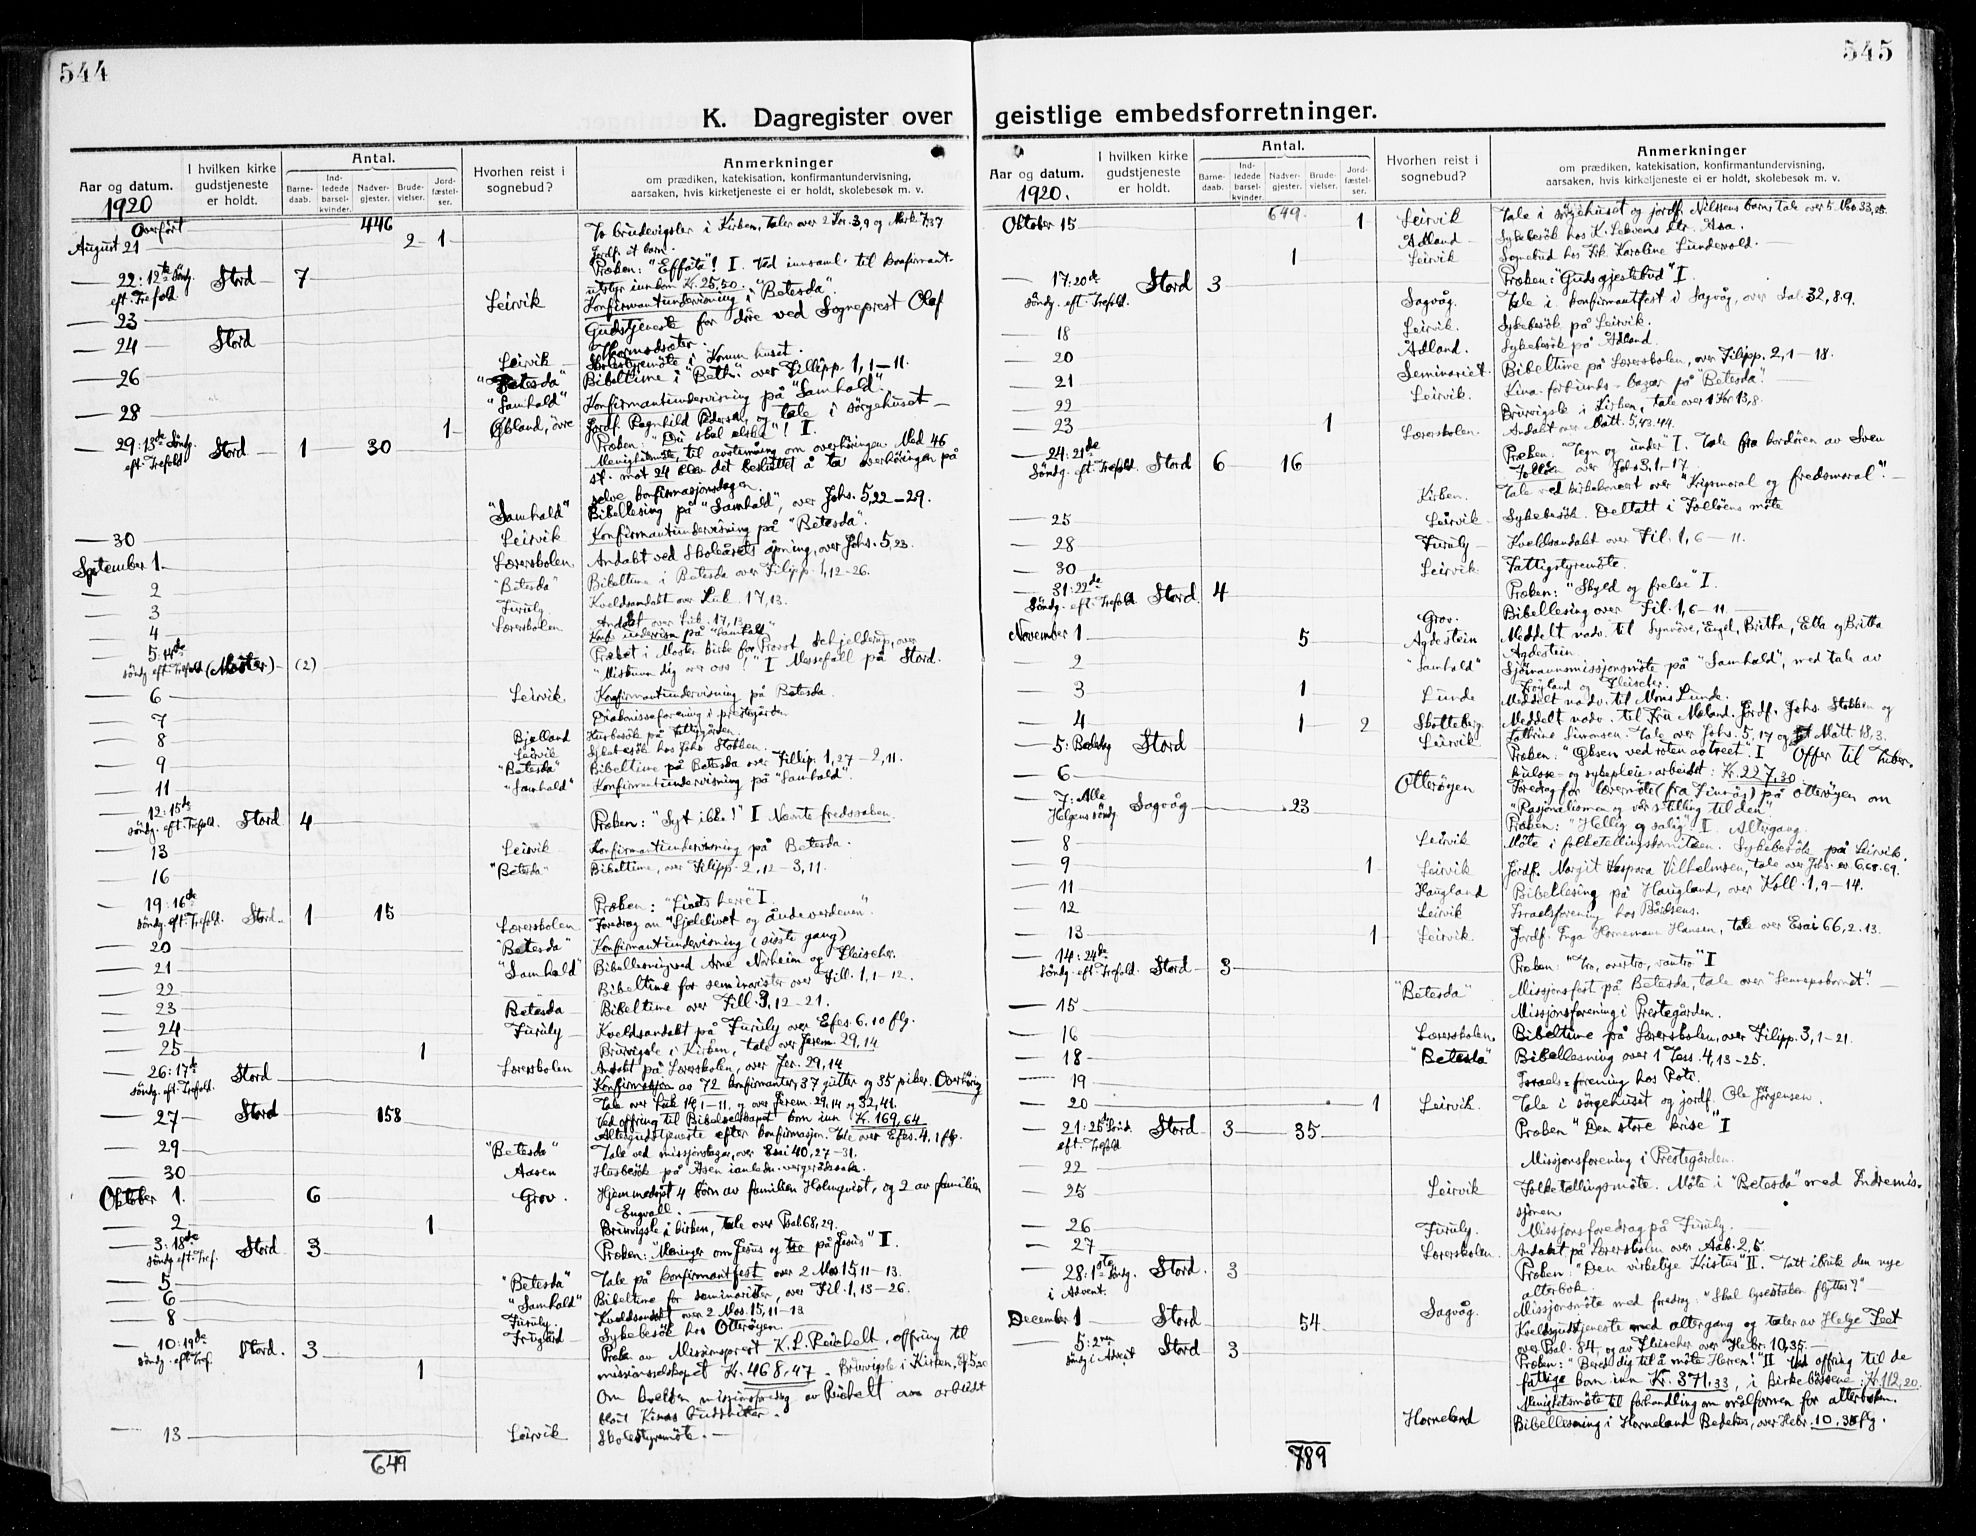 544
K. Dagregister over
Aar og datum.
I hvilken kirke gudstjeneste er holdt.
Antal.
Barne-daab.
Ind-ledede barsel-kvinder.
Nadver-gjester.
Brude-vielser.
Jord-fæstel-ser.
Hvorhen reist i sognebud?
Anmerkninger
om prædiken, katekisation, konfirmantundervisning,
aarsaken, hvis kirketjeneste ei er holdt, skolebesøk m. v.
1920
Overført 446
August 21 2 1 To brudevigsler i Kirken, taler over 2 Kor. 3,9 og Mark. 7,37
Jordf. et barn.
22: 12te Søndg. eft. Trefold. Stord 7 Præken: "Effata"! I. Ved innsaml. til konfirmant-
utstyr innkom Kr. 25,50.
23 Leirvik Konfirmantundervisning i "Betesda".
24 Stord Gudstjeneste for døve ved Sogneprest Olaf
26 Leirvik Skolestyremöte i Komm.huset.
"Betesda" Bibeltime i "Beth." over Fillipp. 1,1-11.
28 "Samhald" Konfirmantundervisning på "Samhald".
1 Øbland, øvre Jordf. Ragnhild Pedersen, og tale i sörgehuset
29: 13de Söndg. eft. Trefold Stord 1 30 Præken: "Du skal elske"! I.
Menighetsmøte, til avstemning om overhöringen. Med 46
st. mot 24 blev det besluttet å ta overhöringen på
selve konfirmasjonsdagen.
"Samhald" Bibellesing på "Samhald", over Johs. 5,22-29.
30 Leirvik Konfirmantundervisning på "Betesda".
September 1. Lærerskolen Andakt ved Skoleårets åpning, over Johs. 5,23.
2 "Betesda" Bibeltime i Betesda over Filipp. 1,12-26.
3 Furuly Kveldsandakt over Luk. 17,13.
4 Lærerskolen Andakt over Luk. 17,13
Konf. undervisn. på "Samhald"
5: 14de söndg. eft. Trefold (Moster) (2) Præket i Moster kirke for Provst Schjelderup, over
"Miskunn dig over oss!" I Messefall på Stord.
6 Leirvik Konfirmantundervisning på Betesda.
7 Diakonisseforening i prestegården
8 Bjelland Husbesök på Fattiggården.
Leirvik Sykebesök hos Johs. Stokken.
9 "Betesda" Bibeltime på Betesda over Fillip. 1,27-2,11.
11 "Samhald" Konfirmantundervisning på "Samhald".
12: 15de söndg. eft. Trefold. Stord 4 Præken: "Syt ikke!" I Nevnte fredssaken.
13 Leirvik Konfirmantundervisning på Betesda.
16 "Betesda" Bibeltime, over Filipp. 2,12-3,11.
19: 16de söndg. eft. Trefold. Stord 1 15 Præken: "Livets herre" I.
Lærerskolen Foredrag om "Sjelelivet og åndeverdenen".
20 "Betesda" Konfirmantundervisning (siste gang)
21 "Samhald" Bibellesning ved Arne Norheim og Fleischer.
22 Bibeltime for seminarister over Fill. 1,1-12.
23 Betesda Bibeltime over Fill. 3,12-21.
24 Furuly Kveldsandakt på Furuly over Efes. 6,10 flg.
25 1 Bruvigsle i Kirken, tale over Jerem. 29,14
26: 17de söndg. eft. Trefold. Stord Lærerskolen Andakt på Lærerskolen, over Jer. 29,14
Konfirmasjon av 72 konfirmanter, 37 gutter og 35 piker. Overhöring
27 Stord 158 Tale over Luk 14,1-11, og over Jerem. 29,14 og 32,41.
Ved offring til Bibelselskapet kom inn Kr. 169,64
Altergudstjeneste efter konfirmasjon. Tale over Efes. 4,1 flg.
29 "Betesda" Tale ved missjonsbazar, over Esai 40,27-31.
30 Aasen Husbesök på Åsen i anledn. vergerådssak.
Oktober 1. 6 Grov. Hjemmedöpt 4 börn av familien Holmqvist, og 2 av familien
Engvall.
2 1 Bruvigsle i kirken, tale over Psal. 68,29.
3: 18de söndg eft. Tref. Stord. 3 Præken: "Meninger om Jesus og tro på Jesus" I.
5 "Betesda" Tale på konfirmantfest over 2 Mos 15,11-13.
6 "Samhald" Bibeltime for seminarister, over Fil. 1,13-26.
8 Furuly. Kveldsandakt over 2 Mos. 15,11-13
Frugård Sykebesök hos Otteröyen
10: 19de söndg. eft. Tref. Stord. 3 Prek. av Missjonsprest K. L. Reichelt, offring til
1 missionsselskapet Kr. 468,47. Bruvigsle i Kirken,
Om kvelden missjonsforedrag av Reichelt om arbeidet
blant Kinas Buddister.
13 Leirvik Skolestyremöte.
649
545
geistlige embedsforretninger.
Aar og datum.
I hvilken kirke gudstjeneste er holdt.
Antal.
Barne-daab.
Ind-ledede barsel-kvinder.
Nadver-gjester.
Brude-vielser.
Jord-fæstel-ser.
Hvorhen reist i sognebud?
Anmerkninger
om prædiken, katekisation, konfirmantundervisning,
aarsaken, hvis kirketjeneste ei er holdt, skolebesøk m. v.
1920.
649.
Oktober 15 1 Leirvik Tale i sörgehuset og jordf. Nilssens barn, tale over 5. Mos 33,25.
Ådland Sykebesök hos K. Lekvens dtr. Åsa.
1 Leirvik Sognebud hos Frk. Karoline Lundevold.
17: 20de söndg. eft. Trefold. Stord 3 Præken: "Guds gjestebud" I.
Sagvåg. Tale i konfirmantfest i Sagvåg, over Sal. 32,8.9.
18 Leirvik. Sykebesök på Leirvik.
20 Ådland. Sykebesök på Ådland.
21 Seminariet. Bibeltime på Lærerskolen, over Filipp. 2,1-18.
22 Leirvik. Kina-forbunds-bazar på "Betesda".
23 1 Bruvigsle i Kirken, tale over 1 Kor 13,8.
Lærerskolen. Andakt over Matt. 5,43.44.
24: 21de Söndg. eft. Trefold. Stord 6 16 Præken: "Tegn og under" I. Tale fra kordören av Sven
Foldöen over Johs 3,1-17
Kirken. Tale ved kirkekonsert over "Krigsmoral og fredsmoral".
25 Leirvik Sykebesök. Deltatt i Foldöens möte
28 Furuly Kveldsandakt over Fil. 1,6-11.
30 Leirvik Fattigstyremöte.
31: 22de Söndg. eft. Trefold. Stord. 4 Præken: "Skyld og frelse" I.
Grov. Bibellesing over Fil. 1,6-11
November 1 5 Agdestein Meddelt nadv. til Synnöve, Engel, Britha, Ella og Britha
Agdestein.
2 "Samhald" Sjömannsmissjonsmöte på "Samhald", med tale av
Fröyland og Fleischer.
3 1 Lunde Meddelt nadv. til Mons Lunde.
4 1 2 Skotteberg Meddelt nadv. til Fru Meland. Jordf. Johs. Stokken og
Leirvik Cathrine Simonsen. Tale over Johs. 5,17 og Matt 18,3.
5: Bededag Stord Præken: "Øksen ved roten av treet" I Offer til tuber-
kulose- og sykepleie-arbeidet: Kr. 227,30
6 Otteröyen Foredrag for lærermöte (fra Finnås) på Otteröyen om
"Rasjonalismen og vår stilling til den"
7: Alle Helgens söndg Sagvåg 23 Præken: "Hellig og salig" I. Altergang.
8 Leirvik Möte i folketellingskomiteen. Sykebesök på Leirvik.
9 1 Leirvik Jordf. Margit Kaspara Vilhelmsen, tale over Johs. 6,68.69.
11 Haugland Bibellesing på Haugland, over Koll. 1,9-14.
12 Leirvik Israelsforening hos Bådsens.
13 1 Leirvik. Jordf. Inga Hornemann Hansen, tale over Esai 66,2.13.
14: 24de söndg. eft. Trefold. Stord 3 Præken: "Tro, overtro, vantro" I
"Betesda" Missjonsfest på Betesda, tale over "Sennepskornet".
15 Missjonsforening i Prestegården.
16 Lærerskolen. Bibeltime på Lærerskolen, over Filipp. 3,1-21.
18 "Betesda" Bibellesning over 1 Tess. 4,13-25.
19 Israels-forening hos Pots.
20 1 Leirvik. Tale i sörgehuset og jordf. Ole Jörgensen.
21: 25de Sönd. eft. Trefold Stord 3 35 Præken "Den store krise" I
22 Missjonsforening i Prestegården.
25 Leirvik Folketellingsmöte. Möte i "Betesda" med Indremis-
sjonen.
26 Furuly. Missjonsforedrag på Furuly.
27 Lærerskolen. Andakt på Lærerskolen over Aab. 2,5.
28: 1ste Söndg. i Advent. Stord. 3 Præken: "Den virkelige Kristus" II. Tatt ibruk den nye
alterbok.
Sagvåg. Missjonsmöte med foredrag: "Skal lysestaken flyttes?"
December 1 Stord 54 Kveldsgudstjeneste med altergang og taler av Helge Fect
over Psal. 84, og av Fleischer over Hebr. 10,35.
5: 2nen söndg i Advent Stord 3 Præken: "Bered dig til å möte Herren!" II Ved offring til de
fattige kom inn Kr. 371,33, i kirkebössene: Kr. 112,20.
Menighetsmöte til forhandling om målformen for alterboken.
Horneland Bibellesning i Horneland Bedehus, over Hebr. 10,35 flg.
789